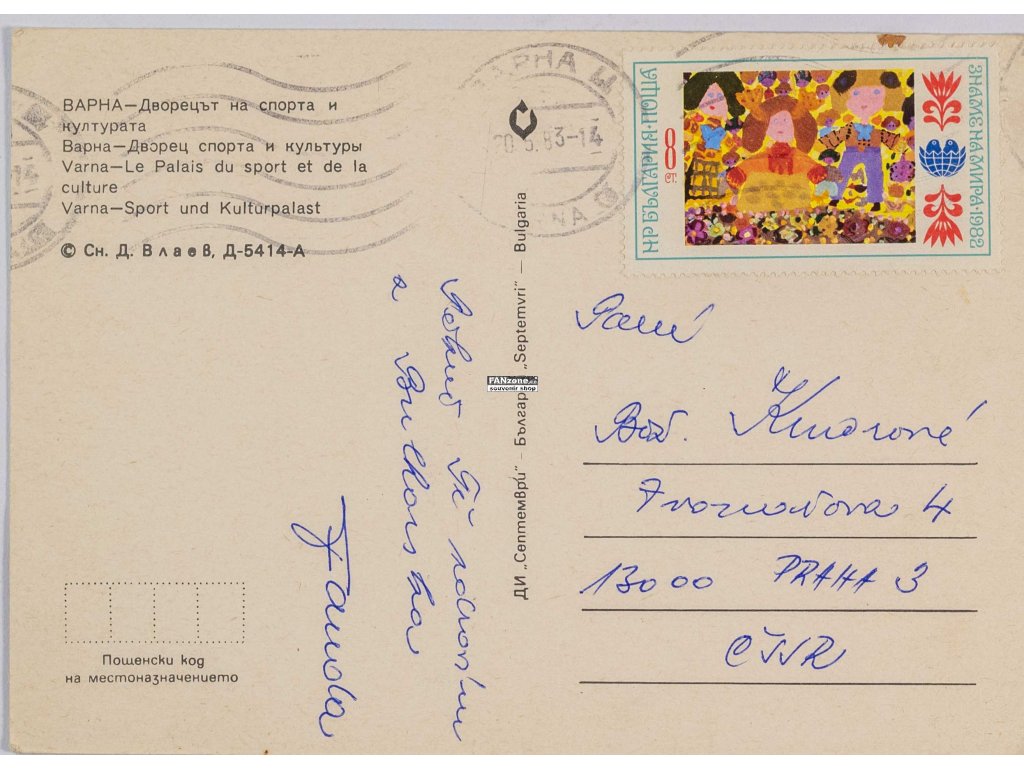 ВАРНА—Дворецът на спорта и
културата
Варна—Дворец спорта и культуры
Varna—Le Palais du sport et de la
culture
Varna—Sport und Kulturpalast
© Сн. Д. Влаев, Д-5414-А
ВАРНА
83-14
НР БЪЛГАРИЯ·ПОЩА
8 СТ.
ЗНАМЕ НА МИРА·1982
ДИ „Септември“ — България „Septemvri“ — Bulgaria
FANzone.cz
souvenir shop
Tě
a
Bulharska
Jarda
Paní
Bož.
4
130 00 PRAHA 3
ČSSR
Пощенски код
на местоназначението